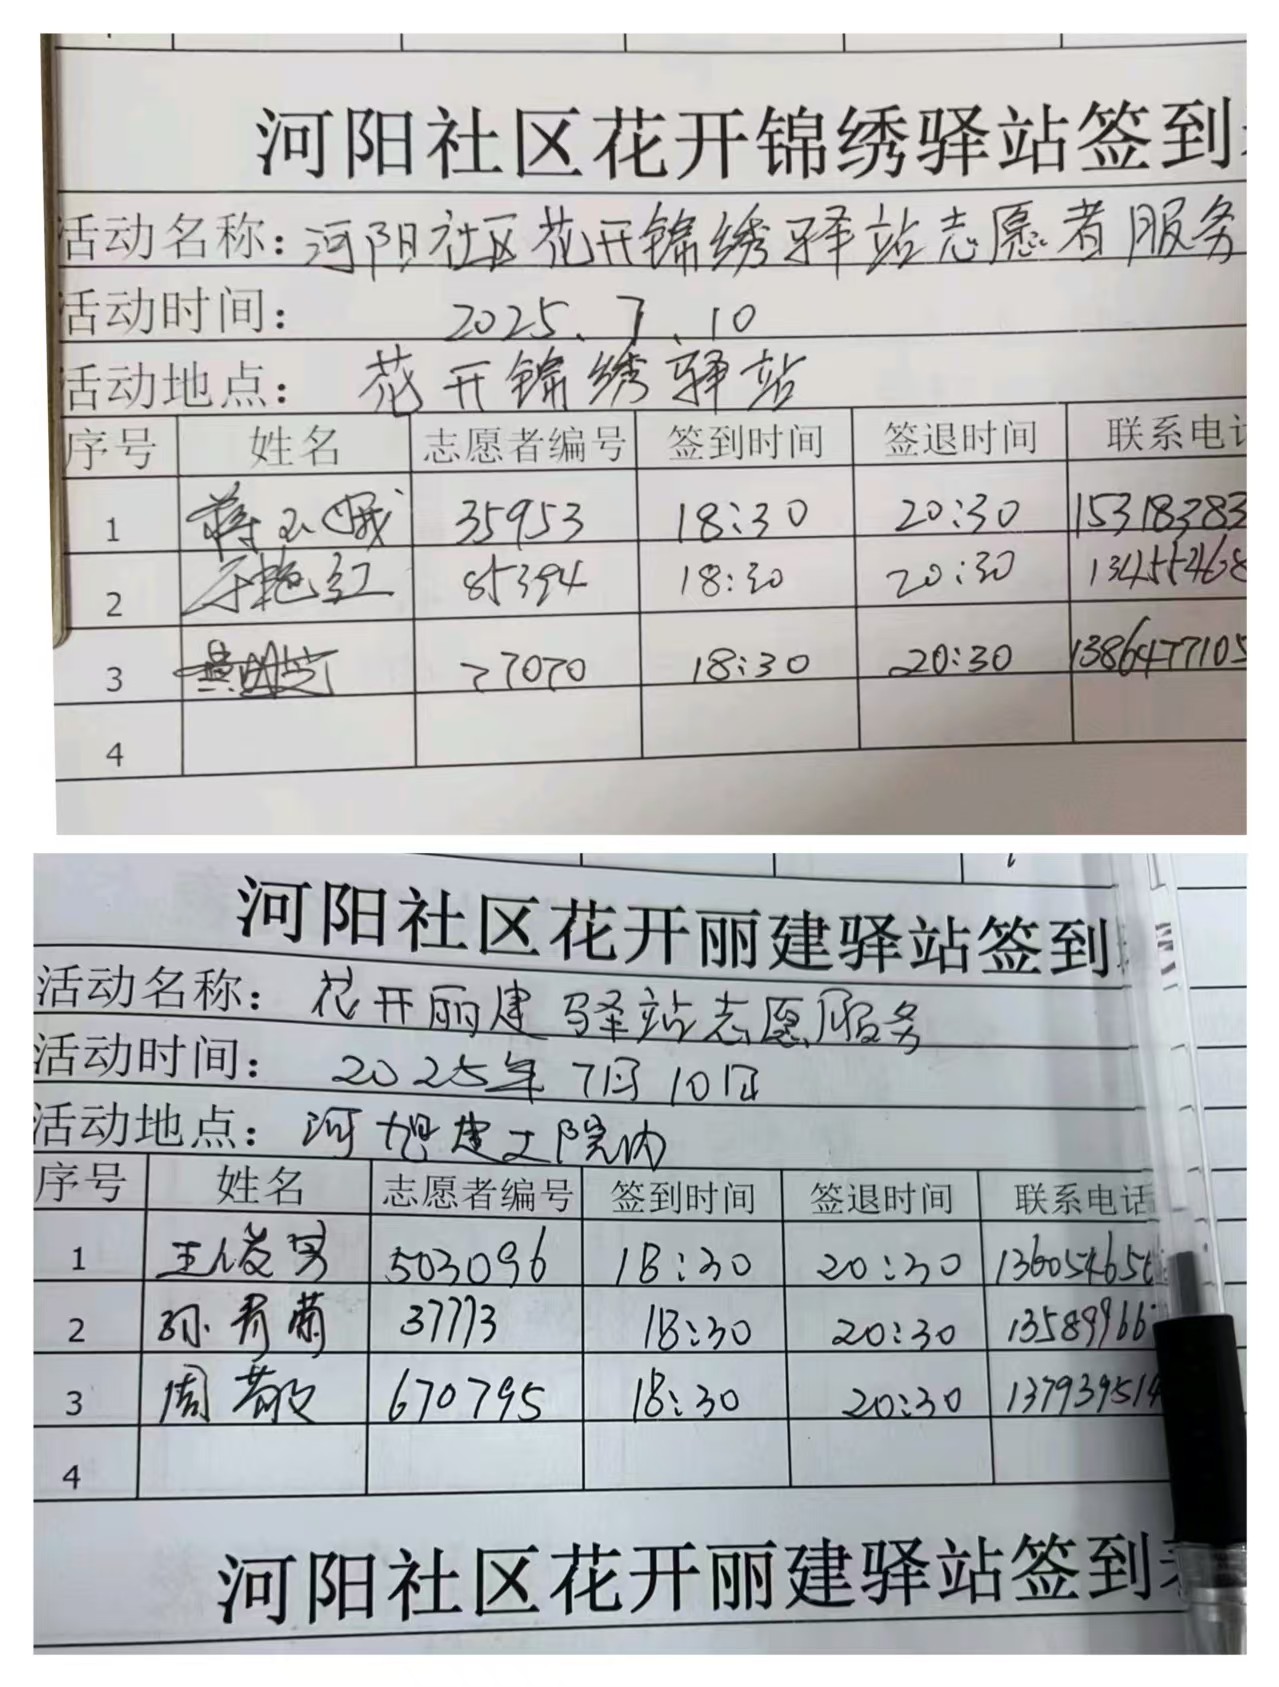 河阳社区花开锦绣驿站签到
活动名称：河阳社区花开锦绣驿站志愿者服务
活动时间： 2025.7.10
活动地点： 花开锦绣驿站
序号 姓名 志愿者编号 签到时间 签退时间 联系电话
1 35953 18:30 20:30 15318383
2 艳红 85394 18:30 20:30 13455468
3 27070 18:30 20:30 1386477105
4
河阳社区花开丽建驿站签到
活动名称：花开丽建驿站志愿服务
活动时间： 2025年7月10日
活动地点： 河阳建工院内
序号 姓名 志愿者编号 签到时间 签退时间 联系电话
1 王俊芳 503096 18:30 20:30 136054656
2 孙秀菊 37773 18:30 20:30 13589966
3 周敬 670795 18:30 20:30 137939514
4
河阳社区花开丽建驿站签到